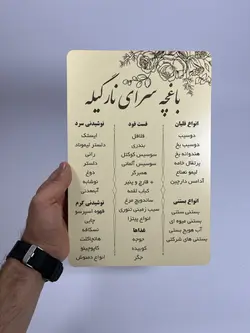 باغچه سرای نارگیله
انواع قلیان
دوسیب
دوسیب یخ
هندوانه یخ
پرتقال خامه
لیمو نعناع
آدامس دارچین
انواع بستنی
بستنی سنتی
بستنی میوه ای
آب هویج بستنی
بستنی های شرکتی
فست فود
فلافل
بندری
سوسیس کوکتل
سوسیس آلمانی
همبرگر
+ قارچ و پنیر
کباب لقمه
ساندویچ مرغ
سیب زمینی تنوری
انواع پیتزا
غذاها
جوجه
کوبیده
جگر
نوشیدنی سرد
ایستک
دلستر لیموناد
رانی
دلستر
دوغ
نوشابه
آبمعدنی
نوشیدنی گرم
قهوه اسپرسو
چایی
نسکافه
هات چاکلت
کاپوچینو
انواع دمنوش